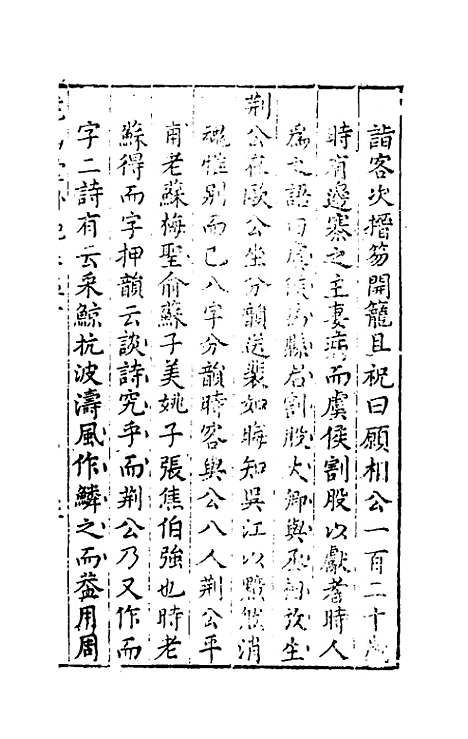 詣客次搢笏開籠且祝曰願相公一百二十歲
時有邊寨之主妻病而虞侯割股以獻者時人
為之語曰虞候為縣君割股大卿與丞相放生
荆公在歐公坐分韻送裴如晦知吳江以黯然消
魂惟别而已八字分韻時客與公八人荆公平
甫老蘇梅聖俞蘇子美姚子張焦伯強也時老
蘇得而字押韻云談詩究乎而荆公乃又作而
字二詩有云采鯨抗波濤風作鱗之而蓋用周